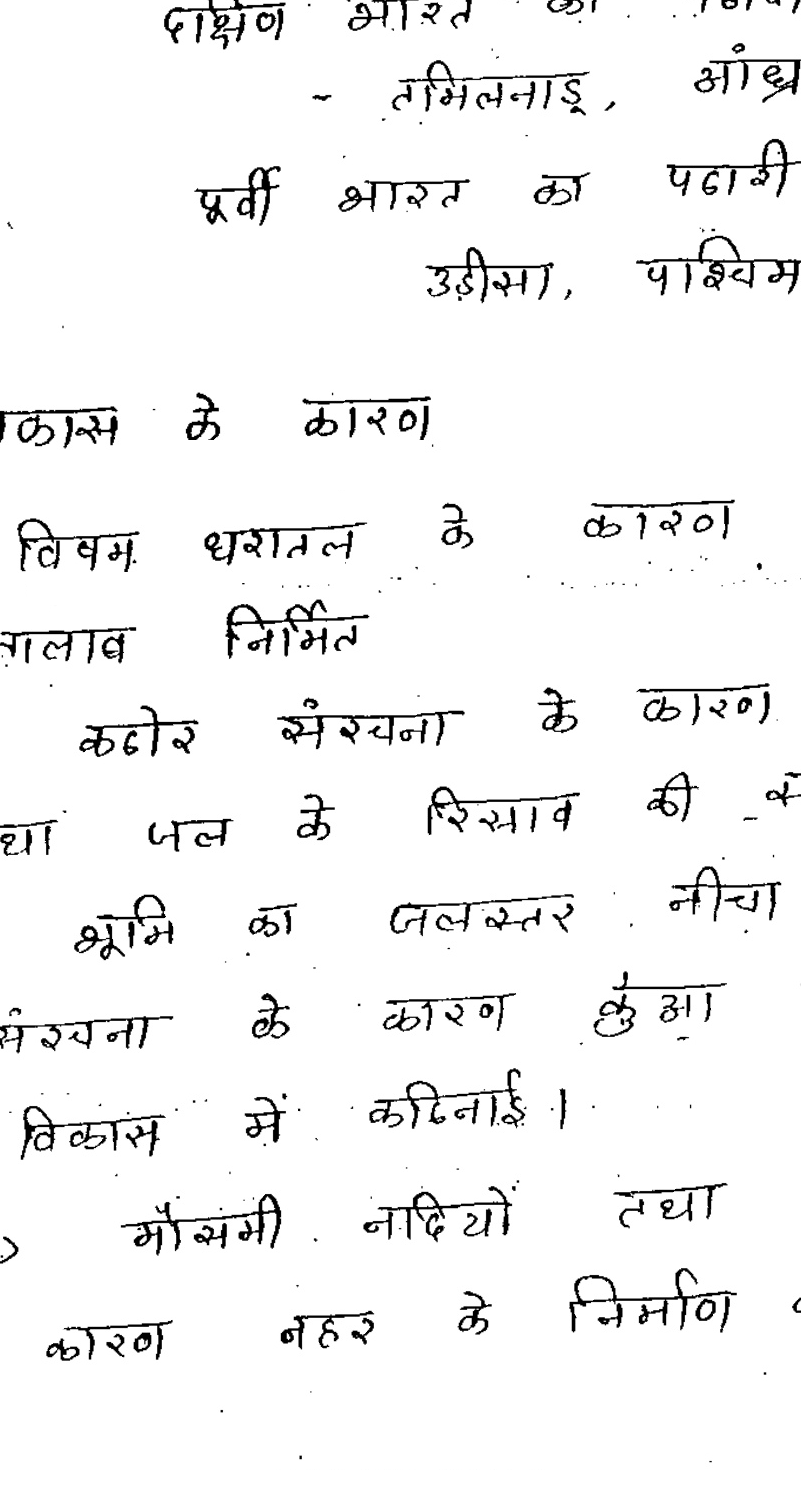 दक्षिण भारत का
- तमिलनाडू, आंध्र
पूर्वी भारत का पठारी
उड़ीसा, पश्चिम
कास के कारण
विषम धरातल के कारण
तालाब निर्मित
कठोर संरचना के कारण
था जल के रिसाव की
भूमि का जलस्तर नीचा
संरचना के कारण कुँआ
विकास में कठिनाई।
मौसमी नदियों तथा
कारण नहर के निर्माण